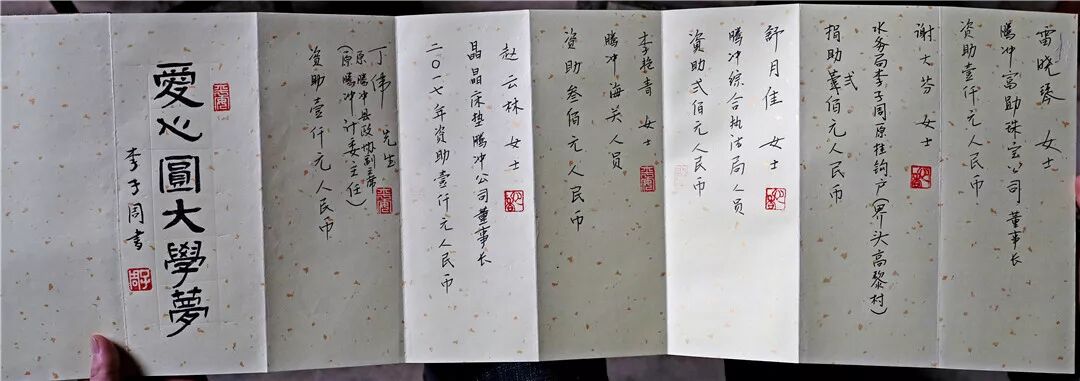 雷晓琴 女士
腾冲富助珠宝公司 董事长
资助壹仟元人民币
谢大芬 女士
水务局李子周原挂钩户(界头高黎村)
捐助弍佰元人民币
舒月佳 女士
腾冲综合执法局人员
资助弍佰元人民币
李艳青 女士
腾冲海关人员
资助叁佰元人民币
赵云林 女士
晶晶床垫腾冲公司董事长
二〇一七年资助壹仟元人民币
丁伟 先生
(原腾冲县政协副主席
原腾冲计委主任)
资助壹仟元人民币
愛心圓大學夢
李子周書
子周